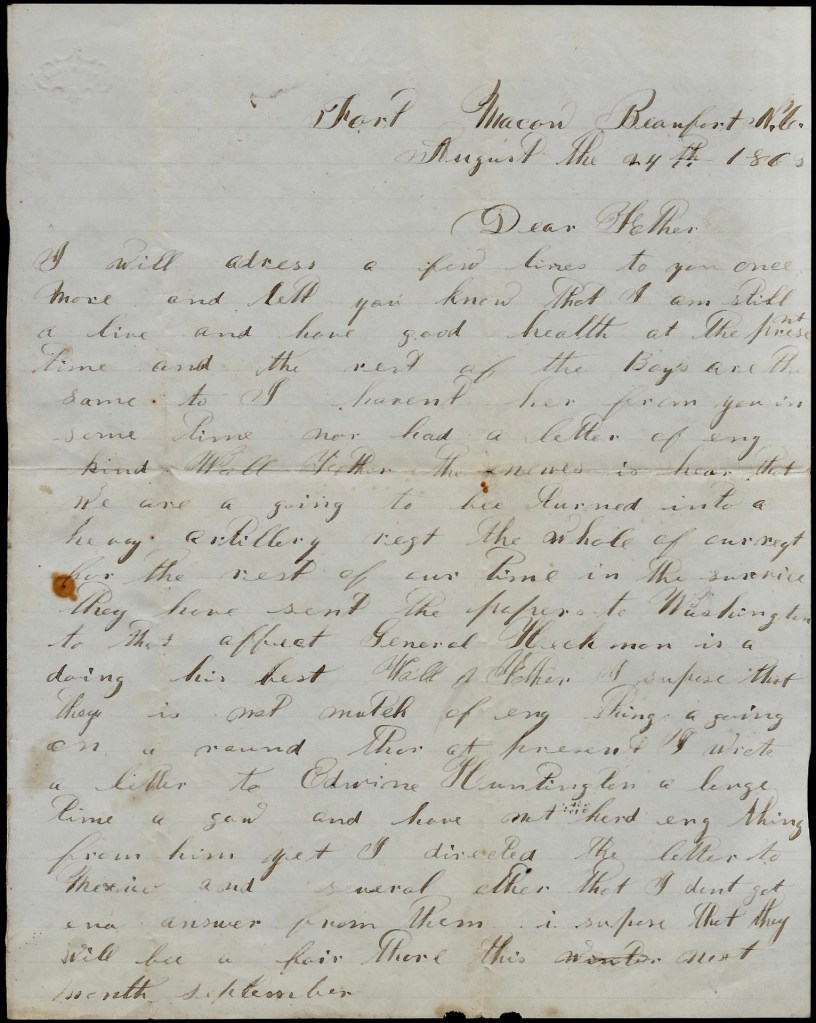 Fort Macon Beaufort N.C.
August the 24th 186
Dear Father
I will adress a few lines to you once
more and lett you know that I am still
a live and have good health at the present
time and the rest of the Boys are the
same to I havent her from you in
some time nor had a letter of eny
kind Wall Father the newes is hear that
we are a going to bee turned into a
hevy artillery regt the whole of our regt
for the rest of our time in the survice
they have sent the papers to Washington
to that affect General Heckman is a
doing his best Wall Father I supose that
they is not mutch of eny thing a going
on a round thar at present I wrote
a letter to Edwine Huntington a longe
time a gow and have not herd eny thing
from him yet I directed the letter to
Mexico and several other that I dont get
eny answer from them i supose that they
will bee a fair there this winter next
month september